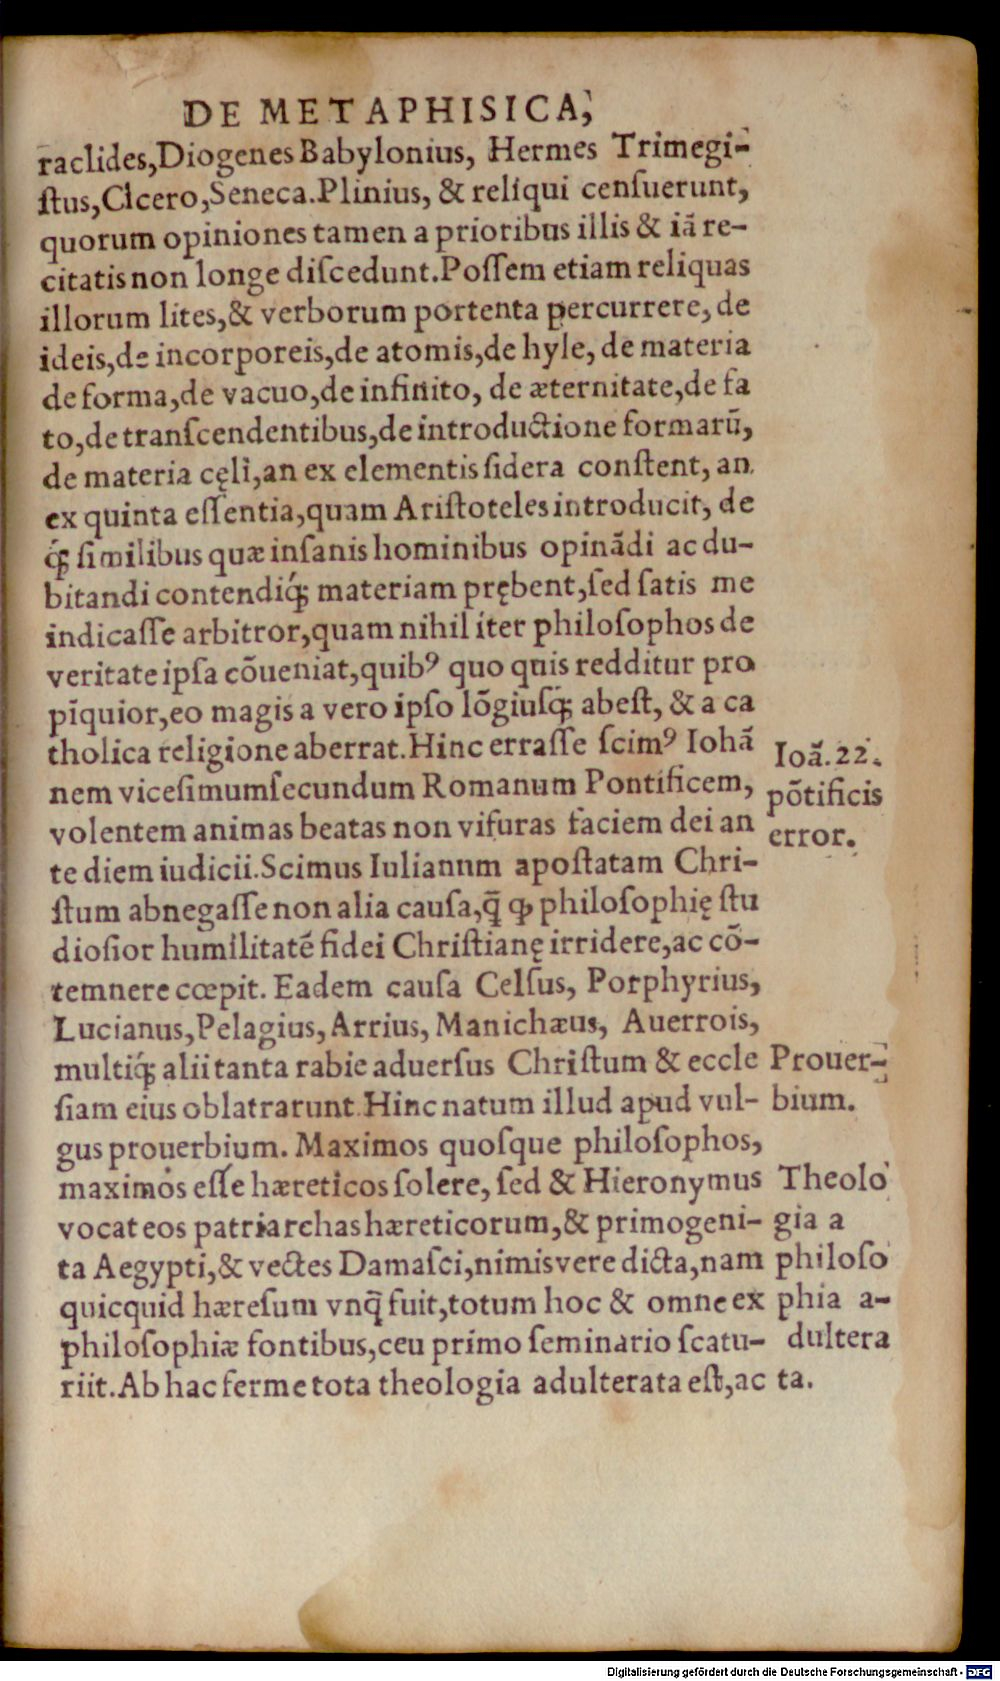 DE METAPHISICA,
raclides,Diogenes Babylonius, Hermes Trimegi-
ſtus,Cicero,Seneca.Plinius, & reliqui cenſuerunt,
quorum opiniones tamen a prioribus illis & iã re-
citatis non longe diſcedunt.Poſſem etiam reliquas
illorum lites,& verborum portenta percurrere, de
ideis,de incorporeis,de atomis,de hyle, de materia
de forma,de vacuo,de infinito, de æternitate,de fa
to,de tranſcendentibus,de introductione formarũ,
de materia cęli,an ex elementis ſidera conſtent, an
ex quinta eſſentia,quam Ariſtoteles introducit, de
q́ꝫ ſimilibus quæ inſanis hominibus opinãdi ac du-
bitandi contendiq́ꝫ materiam prębent,ſed ſatis me
indicaſſe arbitror,quam nihil iter philoſophos de
veritate ipſa cõueniat,quibꝰ quo quis redditur pro
pĩquior,eo magis a vero ipſo lõgiuſq́ꝫ abeſt, & a ca
tholica religione aberrat.Hinc erraſſe ſcimꝰ Iohã
nem viceſimumſecundum Romanum Pontificem,
volentem animas beatas non viſuras faciem dei an
te diem iudicii.Scimus Iulianum apoſtatam Chri-
ſtum abnegaſſe non alia cauſa,q̃ ꝙ philoſophię ſtu
dioſior humilitatẽ fidei Chriſtianę irridere,ac cõ-
temnere cœpit. Eadem cauſa Celſus, Porphyrius,
Lucianus,Pelagius, Arrius, Manichæus, Auerrois,
multiq́ꝫ alii tanta rabie aduerſus Chriſtum & eccle
ſiam eius oblatrarunt.Hinc natum illud apud vul-
gus prouerbium. Maximos quoſque philoſophos,
maximos eſſe hæreticos ſolere, ſed & Hieronymus
vocat eos patriarchas hæreticorum,& primogeni-
ta Aegypti,& vectes Damaſci,nimis vere dicta,nam
quicquid hæreſum vnq̃ fuit,totum hoc & omne ex
philoſophiæ fontibus,ceu primo ſeminario ſcatu-
riit.Ab hac ferme tota theologia adulterata eſt,ac
Ioã.22.
põtificis
error.
Prouer-
bium.
Theolo
gia a
philoſo
phia a-
dultera
ta.
Digitalisierung gefördert durch die Deutsche Forschungsgemeinschaft - DFG